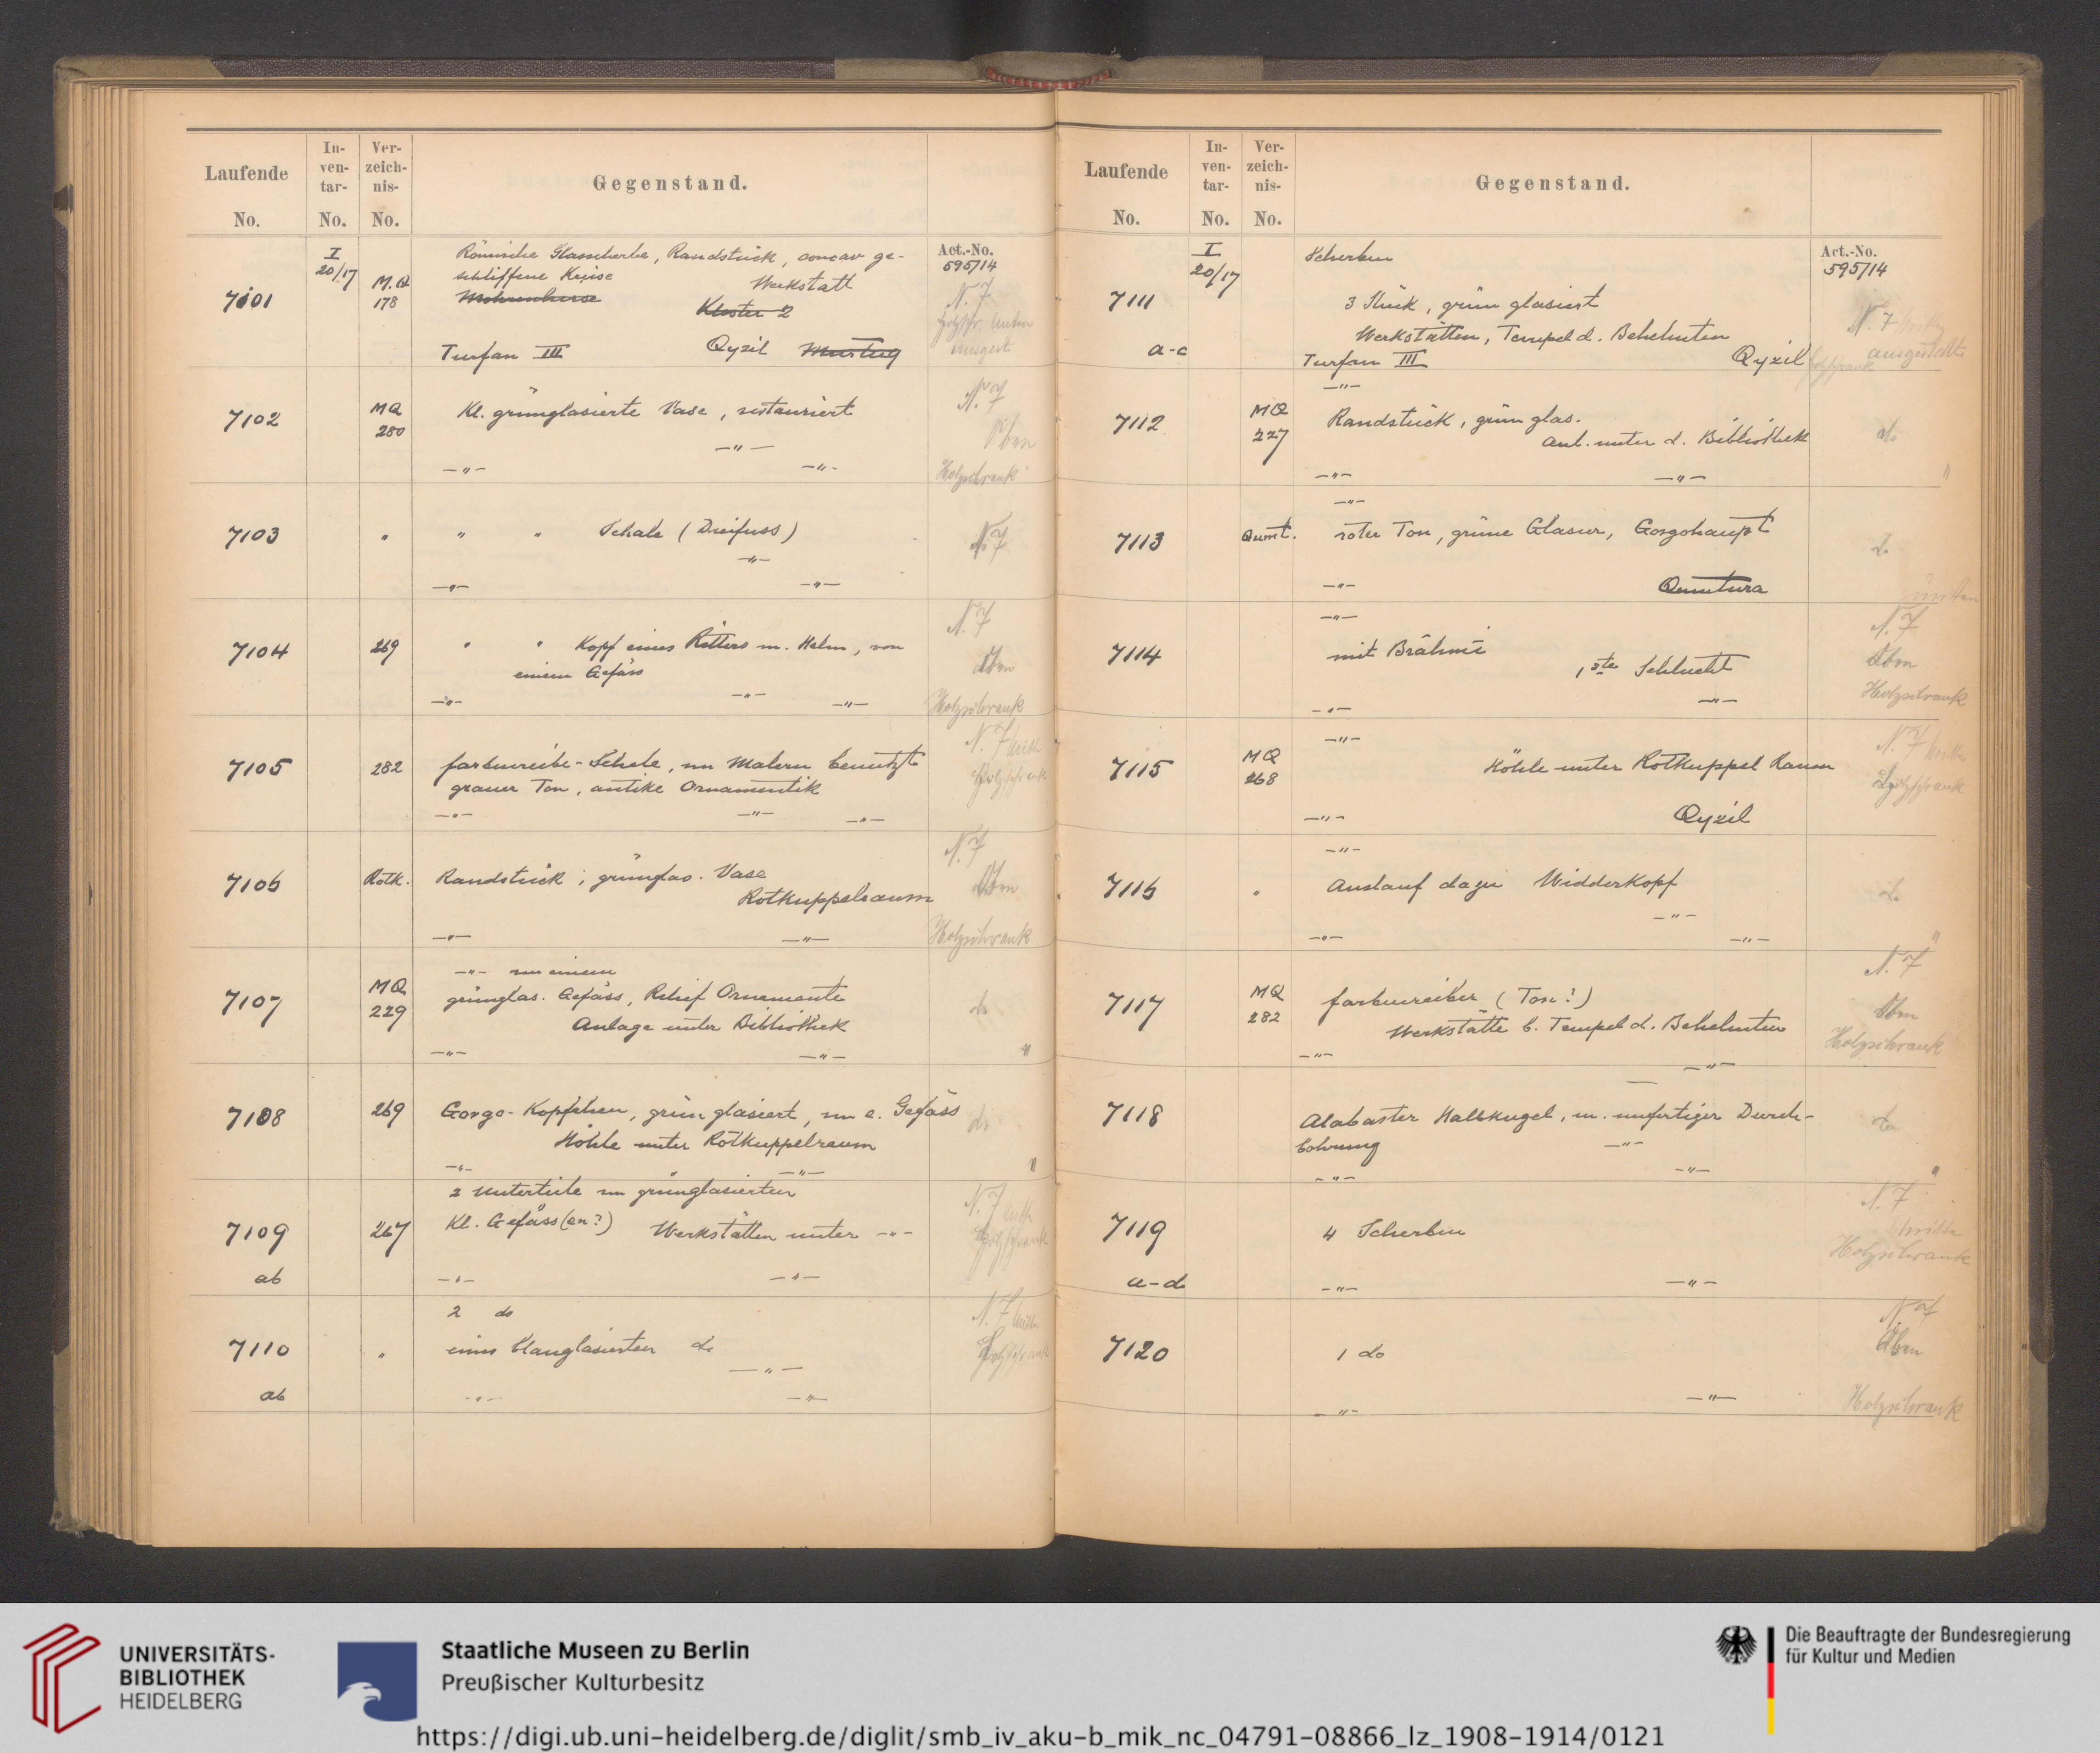 Laufende
No.
In-
ven-
tar-
No.
Ver-
zeich-
nis-
No.
Gegenstand.
7101
I
20/17
M.Q
178
Römische Glasscherbe, Randstück, concav ge-
schliffene Kreise
Werkstatt
Kloster 2
Turfan III
Qyzil
Murtuq
Act.-No.
595/14
N. 7
7102
MQ
280
Kl. grünglasierte Vase, restauriert
—"—
—"—
—"—
N. 7
Oben
Holzschrank
7103
"
" " Schale (Dreifuss)
—"—
—"—
—"—
N. 7
7104
269
" " Kopf eines Ritters m. Helm, von
einem Gefäss
—"—
—"—
—"—
N. 7
Oben
Holzschrank
7105
282
farbenreibe-Schale, von Malern benutzt
grauer Ton, antike Ornamentik
—"—
—"—
—"—
N. 7 Mitte
Holzschrank
7106
Rotk.
Randstück, grünglas. Vase
Rotkuppelraum
—"—
—"—
N. 7
Oben
Holzschrank
7107
MQ
229
—"— von einem
grünglas. Gefäss, Relief Ornamente
Anlage unter Bibliothek
—"—
—"—
do
"
7108
269
Gorgo-Köpfchen, grün glasiert, von e. Gefäss
Höhle unter Rotkuppelraum
—"—
—"—
do
"
7109
ab
267
2 Unterteile von grünglasierten
Kl. Gefäss(en?) Werkstätten unter —"—
—"—
—"—
N. 7 Mitte
Holzschrank
7110
ab
"
2 do
eines blauglasierten do
—"—
—"—
—"—
N. 7 Mitte
Holzschrank
Laufende
No.
In-
ven-
tar-
No.
Ver-
zeich-
nis-
No.
Gegenstand.
7111
a-c
I
20/17
Scherben
3 Stück, grün glasiert
Werkstätten, Tempel d. Behelmten
Turfan III
Qyzil
Act.-No.
595/14
N. 7 Mitte
ausgestellt
Holzschrank
7112
MQ
227
—"—
Randstück, grün glas.
Anl. unter d. Bibliothek
—"—
—"—
do
"
7113
Qumt.
—"—
roter Ton, grüne Glasur, Gorgohaupt
—"—
Qumtura
do
unten
7114
—"—
mit Brāhmī
1ste Schlucht
—"—
—"—
N. 7
Oben
Holzschrank
7115
MQ
268
—"—
Höhle unter Rotkuppel Raum
—"—
Qyzil
N. 7 Mitte
Holzschrank
7116
"
—"—
Auslauf dazu Widderkopf
—"—
—"—
—"—
do
"
7117
MQ
282
farbenreiber (Ton?)
Werkstätte b. Tempel d. Behelmten
—"—
—"—
N. 7
Oben
Holzschrank
7118
Alabaster Halbkugel, m. unfertiger Durch-
bohrung
—"—
—"—
—"—
do
"
7119
a-d
4 Scherben
—"—
—"—
N. 7
Mitte
Holzschrank
7120
1 do
—"—
—"—
N. 7
Oben
Holzschrank
UNIVERSITÄTS-
BIBLIOTHEK
HEIDELBERG
Staatliche Museen zu Berlin
Preußischer Kulturbesitz
Die Beauftragte der Bundesregierung
für Kultur und Medien
https://digi.ub.uni-heidelberg.de/diglit/smb_iv_aku-b_mik_nc_04791-08866_lz_1908-1914/0121